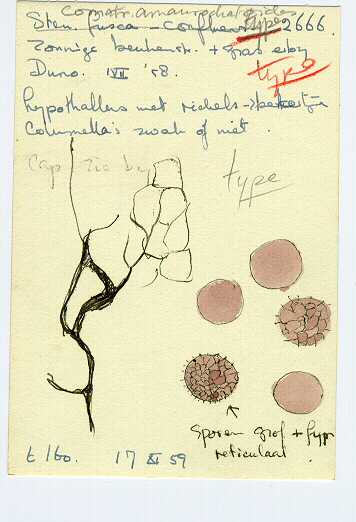 Comatr. amaurochaetoides
Stem. fusca - confluens type 2666.
Zonnige beukenstr. + gras
Duno. IV '58. type
hypothallus met richels -
Columella's zwak of niet.
Cap
type
sporen grof + fijn
reticulaat.
t 160. 17 XI 59